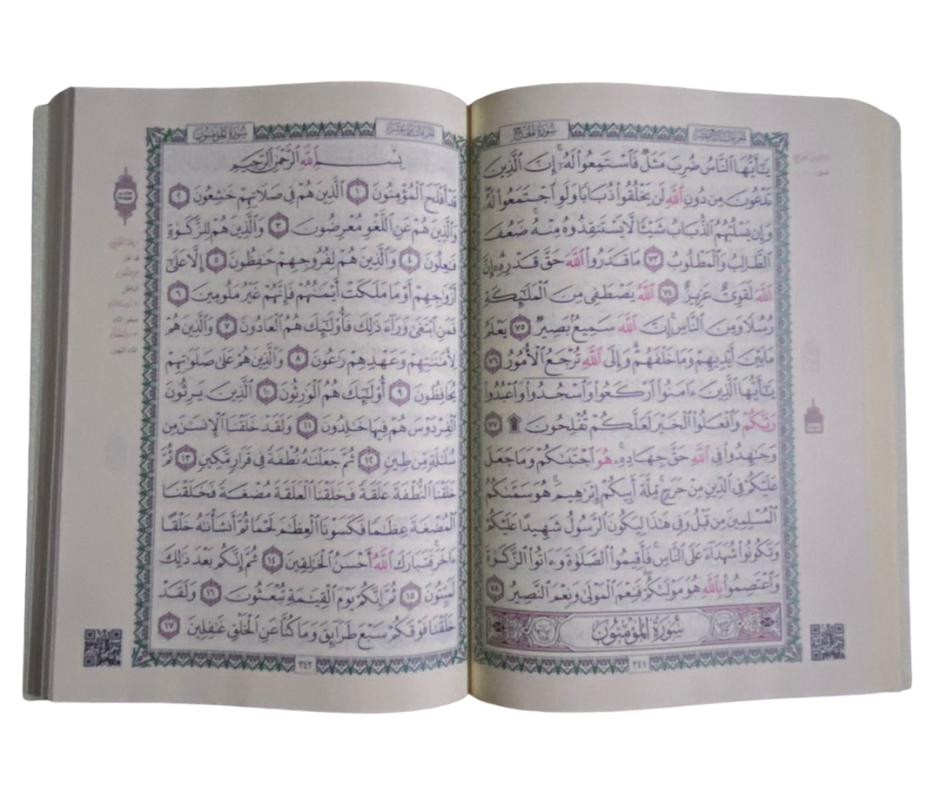 سُورَةُ الحَجِّ
يَٰٓأَيُّهَا ٱلنَّاسُ ضُرِبَ مَثَلٌ فَٱسْتَمِعُوا۟ لَهُۥٓ ۚ إِنَّ ٱلَّذِينَ
تَدْعُونَ مِن دُونِ ٱللَّهِ لَن يَخْلُقُوا۟ ذُبَابًا وَلَوِ ٱجْتَمَعُوا۟ لَهُۥ ۖ
وَإِن يَسْلُبْهُمُ ٱلذُّبَابُ شَيْـًٔا لَّا يَسْتَنقِذُوهُ مِنْهُ ۚ ضَعُفَ
ٱلطَّالِبُ وَٱلْمَطْلُوبُ ٧٣ مَا قَدَرُوا۟ ٱللَّهَ حَقَّ قَدْرِهِۦٓ ۗ إِنَّ
ٱللَّهَ لَقَوِىٌّ عَزِيزٌ ٧٤ ٱللَّهُ يَصْطَفِى مِنَ ٱلْمَلَٰٓئِكَةِ
رُسُلًا وَمِنَ ٱلنَّاسِ ۚ إِنَّ ٱللَّهَ سَمِيعٌۢ بَصِيرٌ ٧٥ يَعْلَمُ
مَا بَيْنَ أَيْدِيهِمْ وَمَا خَلْفَهُمْ ۗ وَإِلَى ٱللَّهِ تُرْجَعُ ٱلْأُمُورُ ٧٦
يَٰٓأَيُّهَا ٱلَّذِينَ ءَامَنُوا۟ ٱرْكَعُوا۟ وَٱسْجُدُوا۟ وَٱعْبُدُوا۟
رَبَّكُمْ وَٱفْعَلُوا۟ ٱلْخَيْرَ لَعَلَّكُمْ تُفْلِحُونَ ۩ ٧٧
وَجَٰهِدُوا۟ فِى ٱللَّهِ حَقَّ جِهَادِهِۦ ۚ هُوَ ٱجْتَبَىٰكُمْ وَمَا جَعَلَ
عَلَيْكُمْ فِى ٱلدِّينِ مِنْ حَرَجٍ ۚ مِّلَّةَ أَبِيكُمْ إِبْرَٰهِيمَ ۚ هُوَ سَمَّىٰكُمُ
ٱلْمُسْلِمِينَ مِن قَبْلُ وَفِى هَٰذَا لِيَكُونَ ٱلرَّسُولُ شَهِيدًا عَلَيْكُمْ
وَتَكُونُوا۟ شُهَدَآءَ عَلَى ٱلنَّاسِ ۚ فَأَقِيمُوا۟ ٱلصَّلَوٰةَ وَءَاتُوا۟ ٱلزَّكَوٰةَ
وَٱعْتَصِمُوا۟ بِٱللَّهِ هُوَ مَوْلَىٰكُمْ ۖ فَنِعْمَ ٱلْمَوْلَىٰ وَنِعْمَ ٱلنَّصِيرُ ٧٨
سُورَةُ المُؤْمِنُونَ
٣٤١
سُورَةُ المُؤْمِنُونَ
بِسْمِ ٱللَّهِ ٱلرَّحْمَٰنِ ٱلرَّحِيمِ
قَدْ أَفْلَحَ ٱلْمُؤْمِنُونَ ١ ٱلَّذِينَ هُمْ فِى صَلَاتِهِمْ خَٰشِعُونَ ٢
وَٱلَّذِينَ هُمْ عَنِ ٱللَّغْوِ مُعْرِضُونَ ٣ وَٱلَّذِينَ هُمْ لِلزَّكَوٰةِ
فَٰعِلُونَ ٤ وَٱلَّذِينَ هُمْ لِفُرُوجِهِمْ حَٰفِظُونَ ٥ إِلَّا عَلَىٰٓ
أَزْوَٰجِهِمْ أَوْ مَا مَلَكَتْ أَيْمَٰنُهُمْ فَإِنَّهُمْ غَيْرُ مَلُومِينَ ٦
فَمَنِ ٱبْتَغَىٰ وَرَآءَ ذَٰلِكَ فَأُو۟لَٰٓئِكَ هُمُ ٱلْعَادُونَ ٧ وَٱلَّذِينَ هُمْ
لِأَمَٰنَٰتِهِمْ وَعَهْدِهِمْ رَٰعُونَ ٨ وَٱلَّذِينَ هُمْ عَلَىٰ صَلَوَٰتِهِمْ
يُحَافِظُونَ ٩ أُو۟لَٰٓئِكَ هُمُ ٱلْوَٰرِثُونَ ١٠ ٱلَّذِينَ يَرِثُونَ
ٱلْفِرْدَوْسَ هُمْ فِيهَا خَٰلِدُونَ ١١ وَلَقَدْ خَلَقْنَا ٱلْإِنسَٰنَ مِن
سُلَٰلَةٍ مِّن طِينٍ ١٢ ثُمَّ جَعَلْنَٰهُ نُطْفَةً فِى قَرَارٍ مَّكِينٍ ١٣ ثُمَّ
خَلَقْنَا ٱلنُّطْفَةَ عَلَقَةً فَخَلَقْنَا ٱلْعَلَقَةَ مُضْغَةً فَخَلَقْنَا
ٱلْمُضْغَةَ عِظَٰمًا فَكَسَوْنَا ٱلْعِظَٰمَ لَحْمًا ثُمَّ أَنشَأْنَٰهُ خَلْقًا
ءَاخَرَ ۚ فَتَبَارَكَ ٱللَّهُ أَحْسَنُ ٱلْخَٰلِقِينَ ١٤ ثُمَّ إِنَّكُم بَعْدَ ذَٰلِكَ
لَمَيِّتُونَ ١٥ ثُمَّ إِنَّكُمْ يَوْمَ ٱلْقِيَٰمَةِ تُبْعَثُونَ ١٦ وَلَقَدْ
خَلَقْنَا فَوْقَكُمْ سَبْعَ طَرَآئِقَ وَمَا كُنَّا عَنِ ٱلْخَلْقِ غَٰفِلِينَ ١٧
٣٤٢